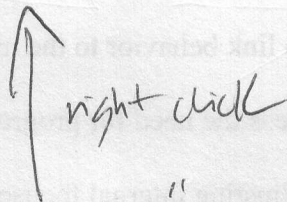 right click
"